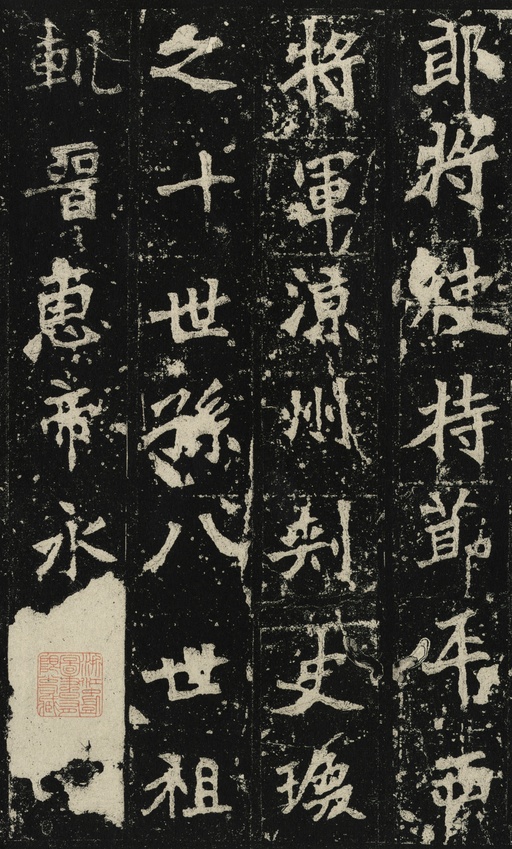 郎將使持節平西
將軍涼州刾史瓊
之十世孫八世祖
軌晉惠帝永